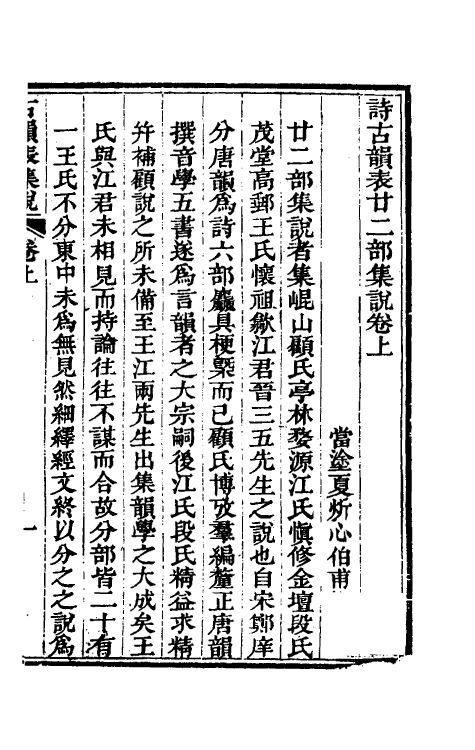 詩古韻表廿二部集說卷上
當塗夏炘心伯甫
廿二部集說者集崐山顧氏亭林婺源江氏愼修金壇段氏
茂堂高郵王氏懷祖歙江君晉三五先生之說也自宋鄭庠
分唐韻爲詩六部麤具梗槩而已顧氏博攷羣編釐正唐韻
撰音學五書遂爲言韻者之大宗嗣後江氏段氏精益求精
幷補顧說之所未備至王江兩先生出集韻學之大成矣王
氏與江君未相見而持論往往不謀而合故分部皆二十有
一王氏不分東中未爲無見然細繹經文終以分之之說爲
古韻表集說
卷上
一